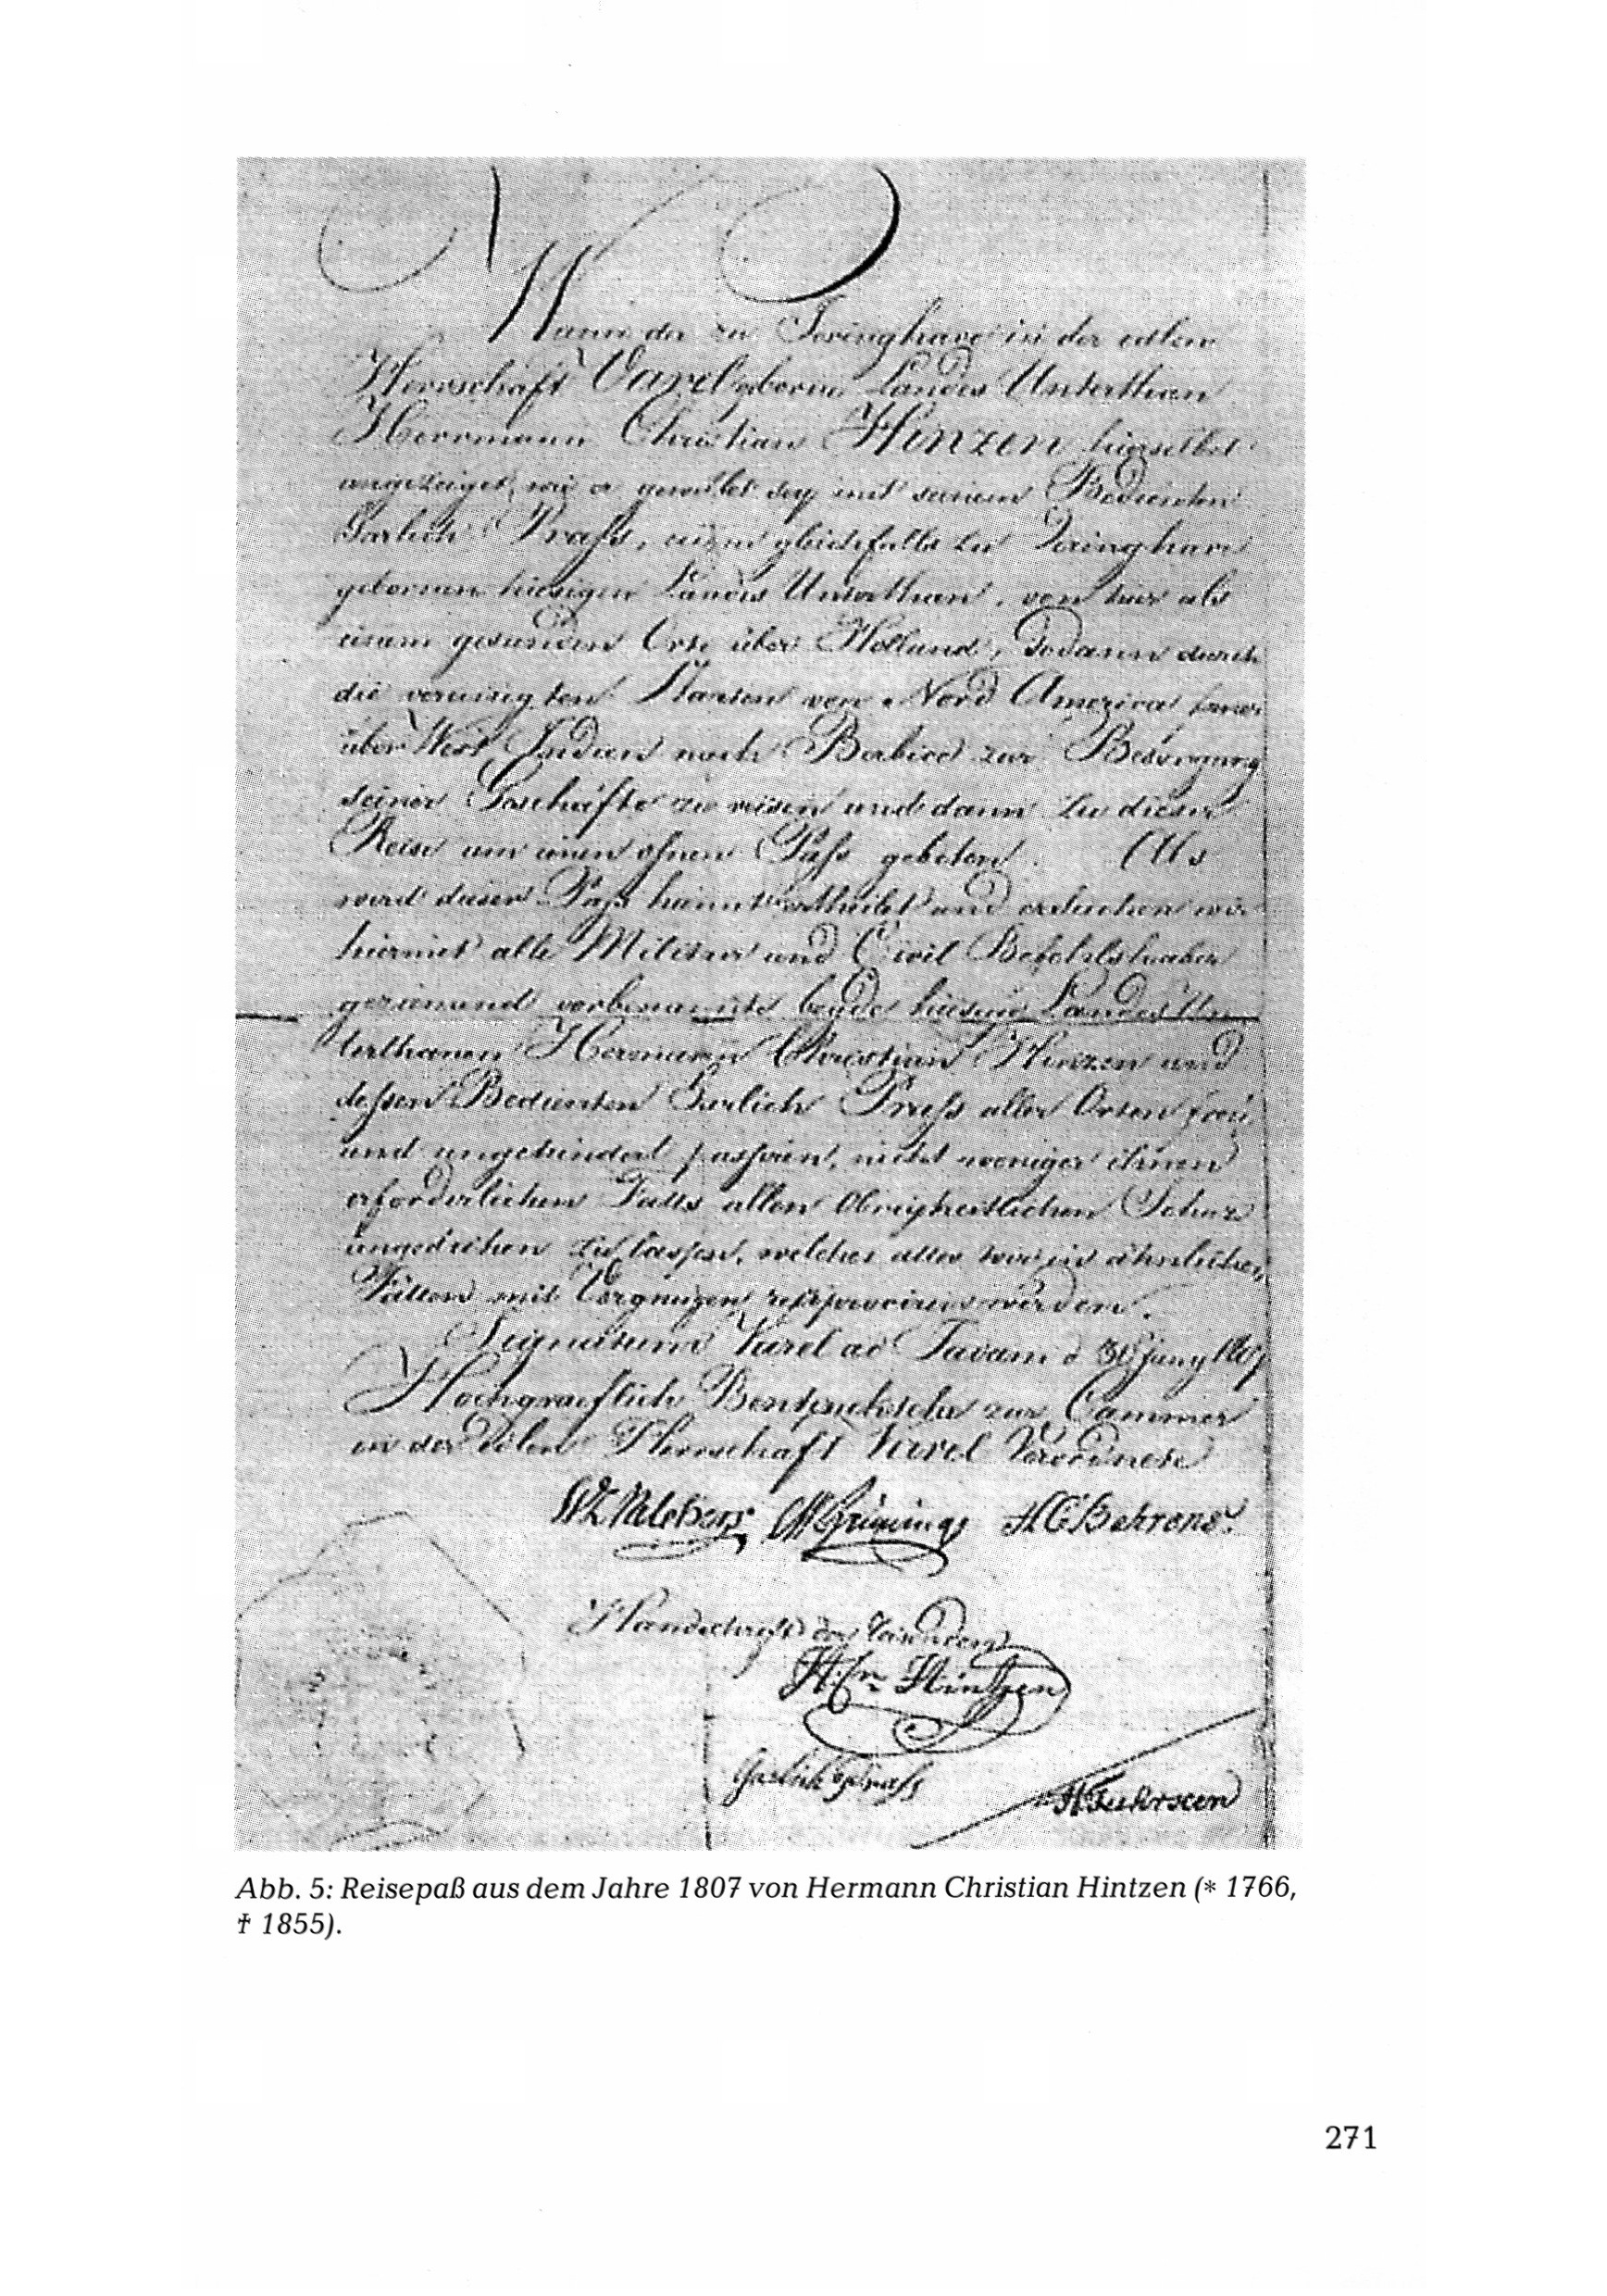 Wann der zu Jeringhave in der edlen
Herrschaft Varel geborne Landes Unterthan
Herrmann Christian Hinzen hieselbst
angezeiget, wie er gewillet sey mit seinem Bedienten
Garlich Prass, einem gleichfalls zu Jeringhave
gebornen hiesigen Landes Unterthan, von hier als
einem gesunden Orte über Holland, Sodann durch
die vereinigten Staaten von Nord America ferner
über West Indien nach Berbice zur Besorgung
seiner Geschäfte zu reisen und dann zu dieser
Reise um einen ofnen Pass gebeten. Als
wird dieser Pass hiemit ertheilet und ersuchen wir
hiermit alle Militair und Civil Befehlshaber
geziemend vorbenannte beyde hiesige Landes Un
terthanen Hermann Christian Hinzen und
dessen Bedienten Garlich Prass aller Orten frei
und ungehindert passiren, nicht weniger ihnen
erforderlichen Falls allen Obrigkeitlichen Schuz
angedeihen zu lassen, welches alles wir in ähnlichen
Fällen mit Vergnügen reciprociren werden.
Signatum Varel ad Javam d 30 Juny 1807
Hochgraeflich Bentincksche zur Cammer
in der Edlen Herrschaft Varel Verordnete
Grüning HGBehrens.
Handschrift des Reisenden
H. Cr. Hintzen
Garlich Prass
Abb. 5: Reisepaß aus dem Jahre 1807 von Hermann Christian Hintzen (* 1766,
† 1855).
271